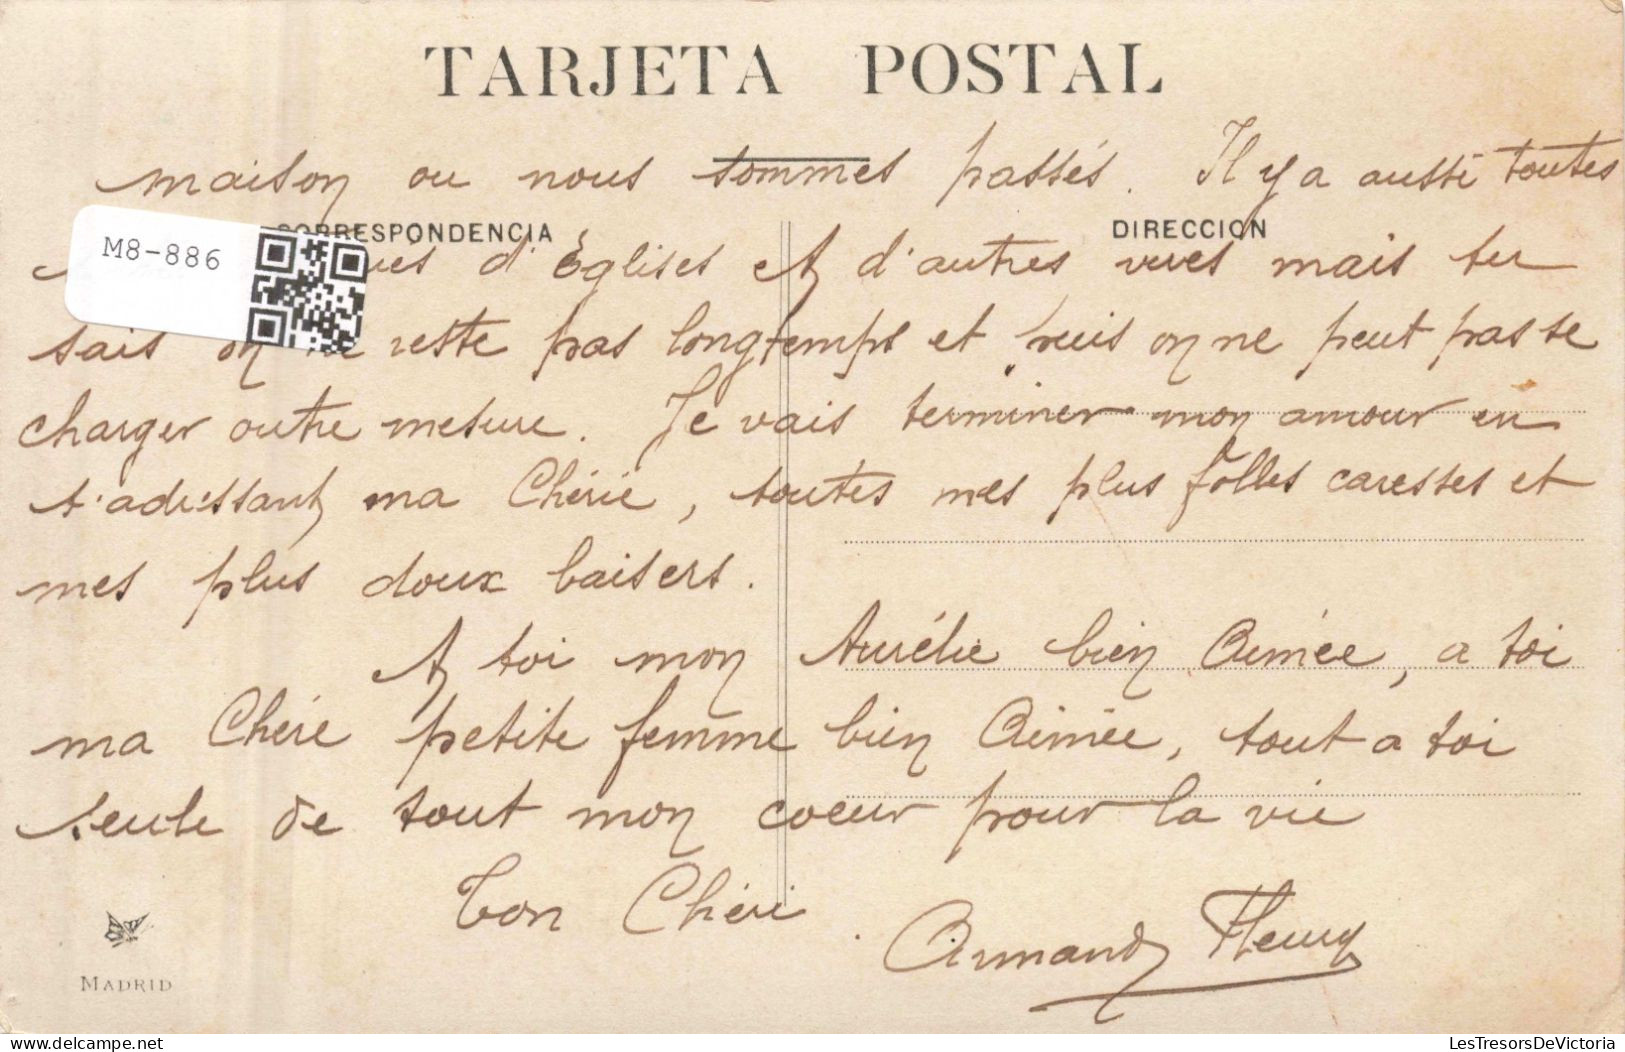 TARJETA POSTAL
maison ou nous sommes passés. Il y a aussi toutes
CORRESPONDENCIA
DIRECCION
M8-886
d'Eglises et d'autres vues mais tu
sais on ne reste pas longtemps et puis on ne peut pas se
charger outre mesure. Je vais terminer mon amour en
t'adressant ma Chérie, toutes mes plus folles caresses et
mes plus doux baisers.
A toi mon Aurélie bien Aimée, a toi
ma Chère petite femme bien Aimée, tout a toi
seule de tout mon coeur pour la vie
Ton Chéri.
Armand Fleury
MADRID
delcampe.net
LesTresorsDeVictoria